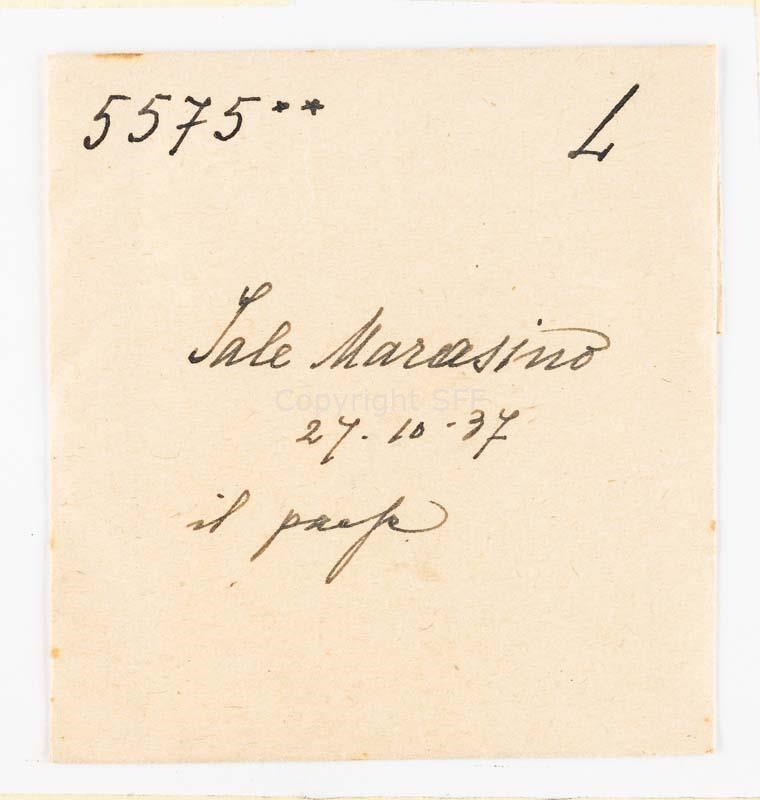 5575** L
Sale Marasino
Copyright SFF
27.10.37
il paese